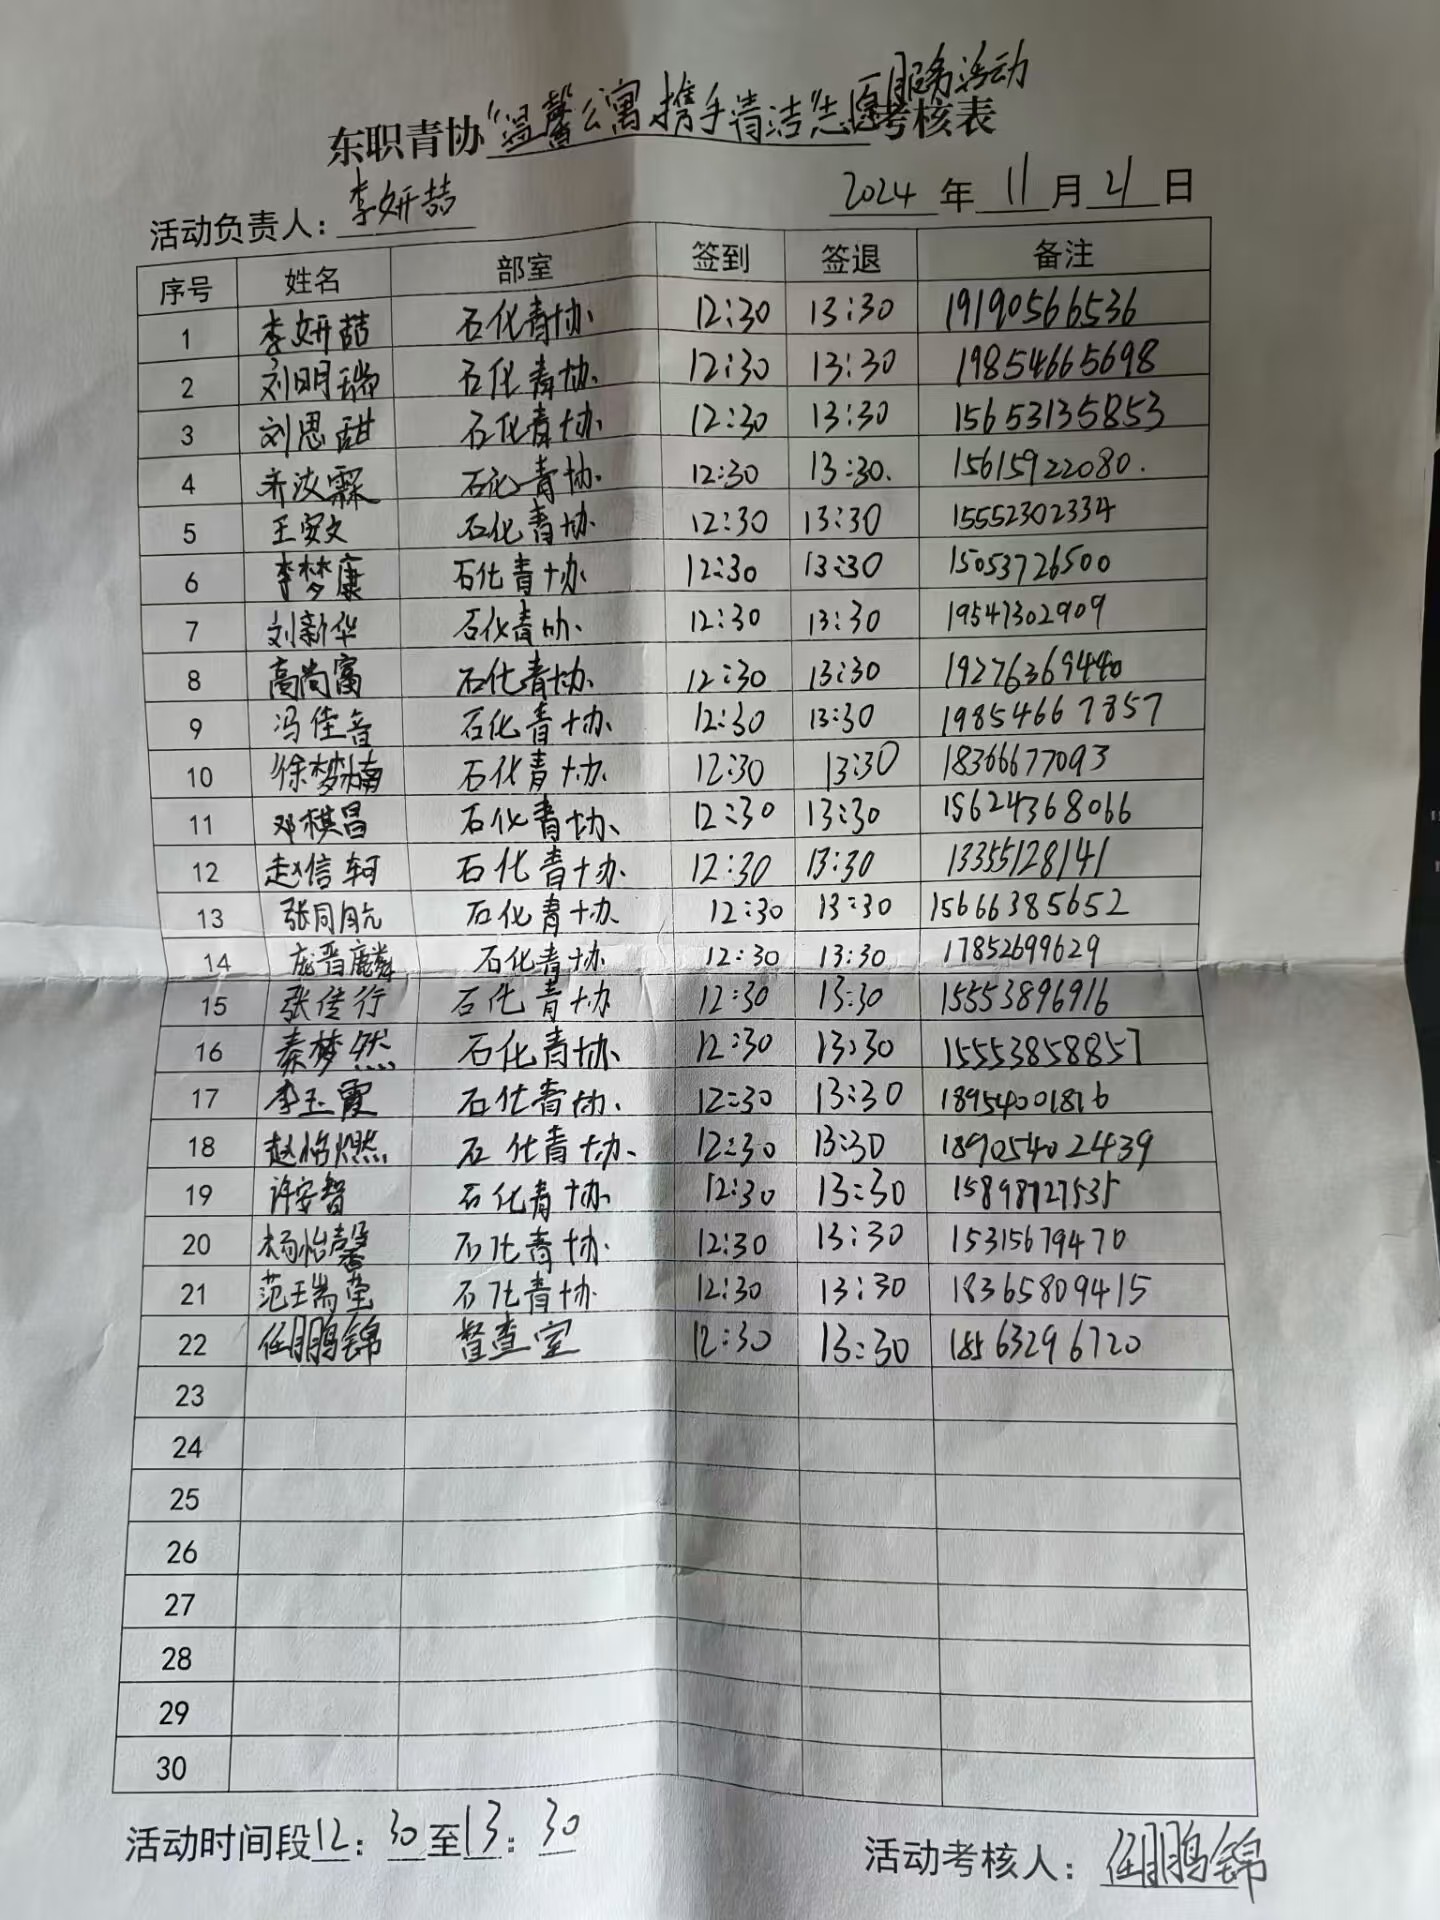 东职青协“温馨公寓 携手清洁”志愿服务活动考核表
活动负责人：李妍喆 2024年11月21日
序号 姓名 部室 签到 签退 备注
1 李妍喆 石化青协 12:30 13:30 19190566536
2 刘明瑞 石化青协 12:30 13:30 19854665698
3 刘思甜 石化青协 12:30 13:30 15653135853
4 齐汝霖 石化青协 12:30 13:30. 15615922080.
5 王安文 石化青协 12:30 13:30 15552302334
6 李梦康 石化青协 12:30 13:30 15053726500
7 刘新华 石化青协 12:30 13:30 19547302909
8 高尚富 石化青协 12:30 13:30 19276369440
9 冯佳音 石化青协 12:30 13:30 19854667857
10 徐梦楠 石化青协 12:30 13:30 18366677093
11 邓棋昌 石化青协 12:30 13:30 15624368066
12 赵信轲 石化青协 12:30 13:30 13355128141
13 张同航 石化青协 12:30 13:30 15666385652
14 庞晋麟 石化青协 12:30 13:30 17852699629
15 张传行 石化青协 12:30 13:30 15553896916
16 秦梦然 石化青协 12:30 13:30 15553858857
17 李玉霞 石化青协 12:30 13:30 18954001816
18 赵怡燃 石化青协 12:30 13:30 189054024439
19 许安智 石化青协 12:30 13:30 15898727535
20 杨怡馨 石化青协 12:30 13:30 15315679470
21 范瑞莹 石化青协 12:30 13:30 18365809415
22 任鹏锦 督查室 12:30 13:30 18563296720
23
24
25
26
27
28
29
30
活动时间段12：30至13：30 活动考核人：任鹏锦